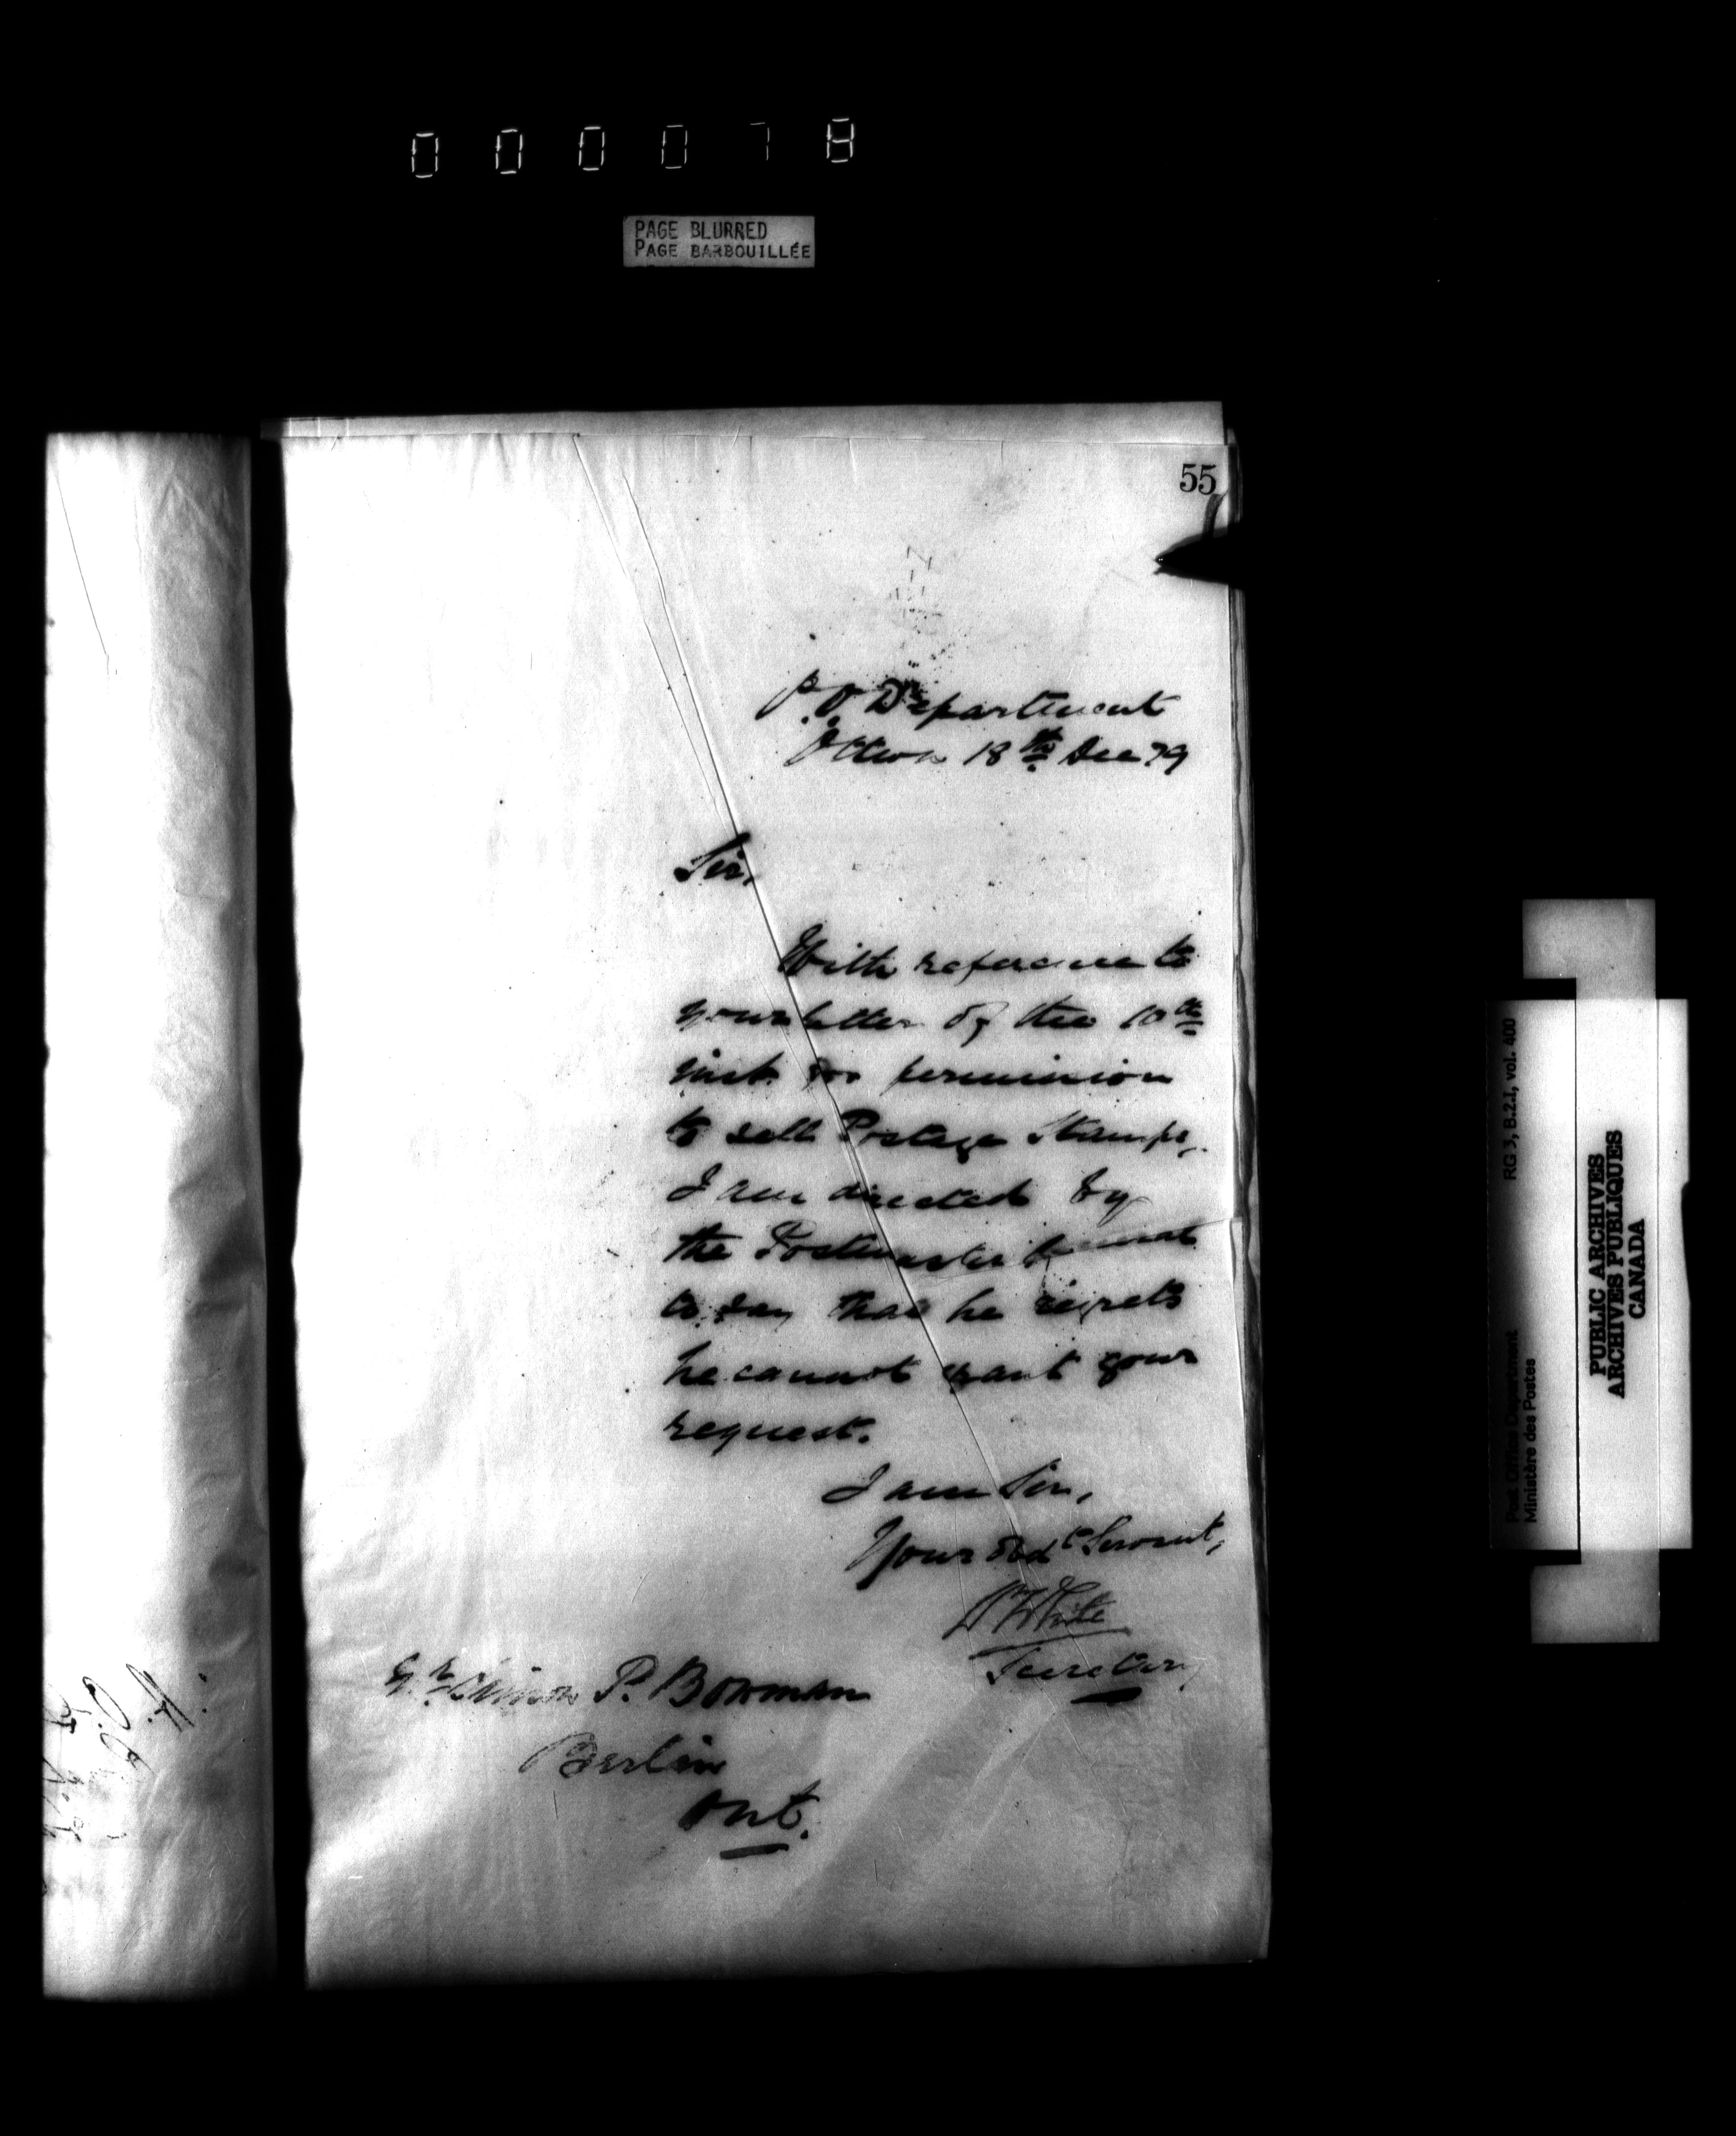 0 0 0 0 7 8
PAGE BLURRED
PAGE BARBOUILLÉE
55
P.O. Department
Ottawa 18th Dec 79
Sir,
With reference to
your letter of the 10th
inst. for permission
to sell Postage Stamps,
I am directed by
the Postmaster General
to say that he regrets
he cannot grant your
request.
I am Sir,
Your Obdt Servant,
White
Secretary
P. Bowman
Berlin
Ont.
RG 3, B.2.I, vol. 400
Post Office Department
Ministère des Postes
PUBLIC ARCHIVES
ARCHIVES PUBLIQUES
CANADA